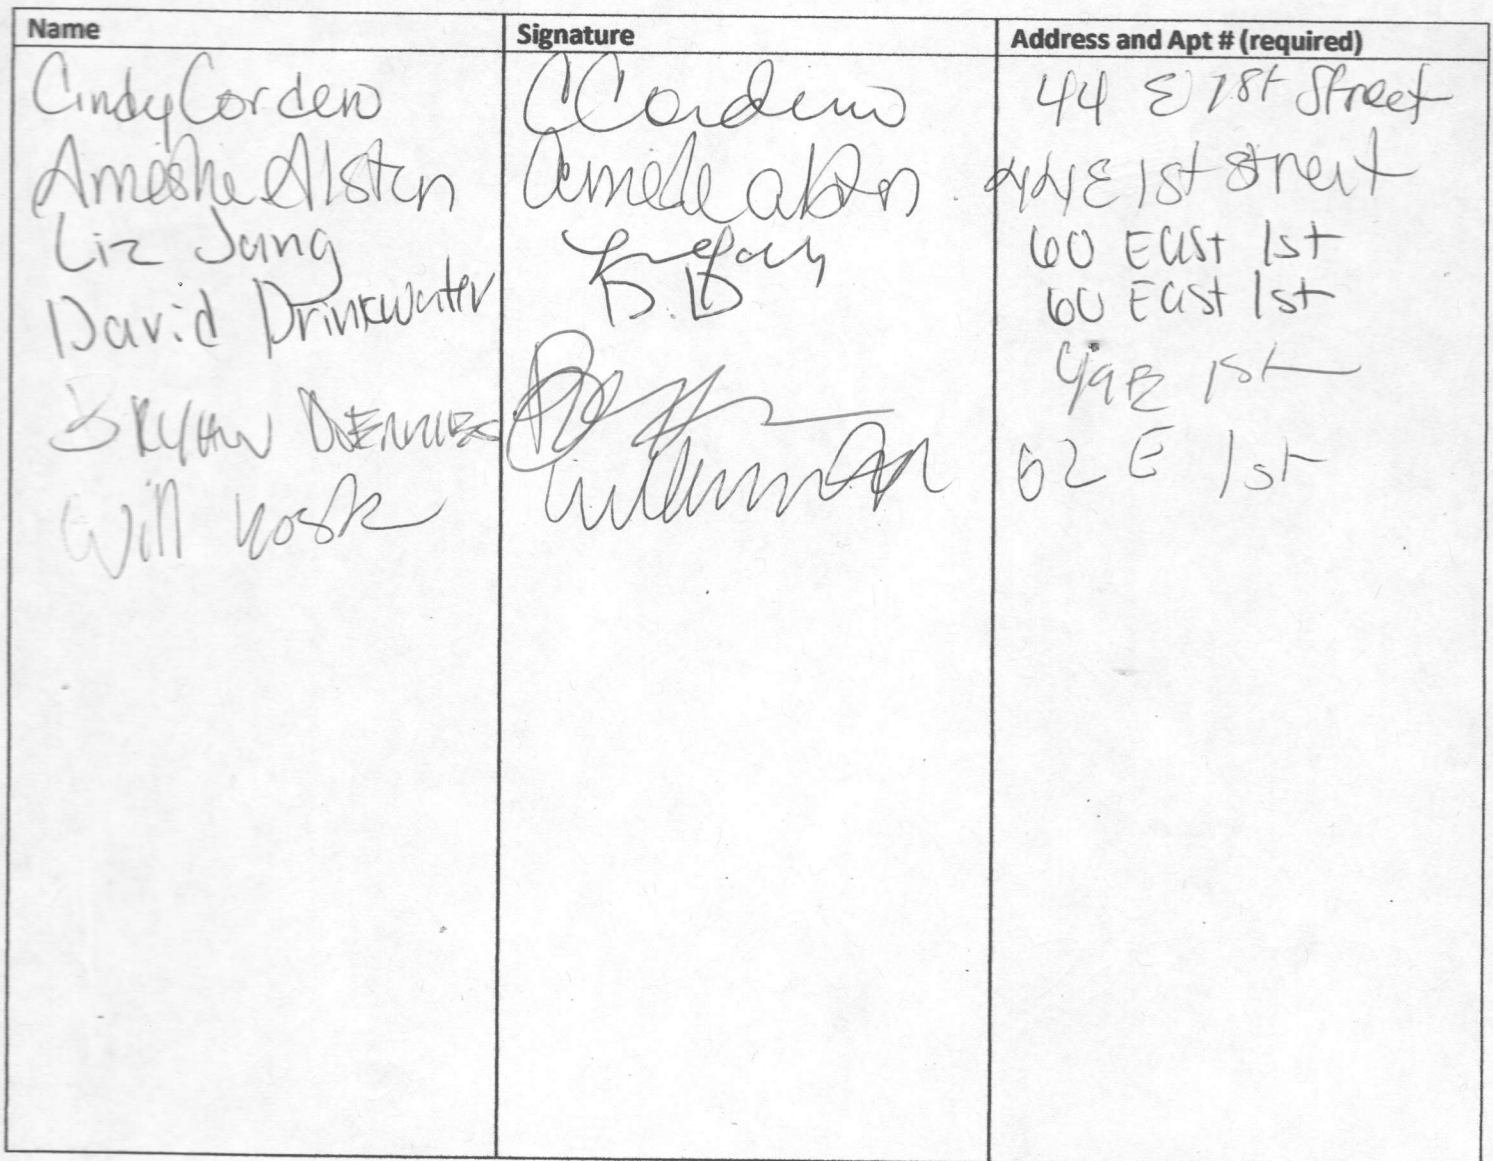 Name Signature Address and Apt # (required)
Cindy Cordero CCordero 44 E 1st Street
Ameshe Alston 44 E 1st Street
Liz Jang 60 East 1st
David Drinkwater D.D 60 East 1st
49 E 1st
Will 62 E 1st